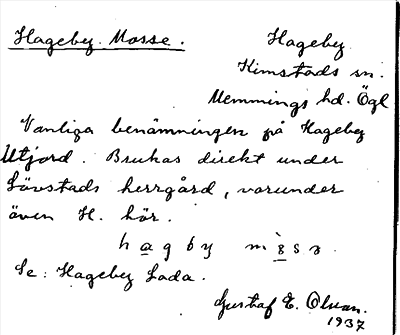 Hageby Mosse.
Hageby
Kimstads sn.
Memmings hd. Ögl
Vanliga benämningen på Hageby
Utjord. Brukas direkt under
Lövstads herrgård, varunder
även H. hör.
hagby
Se: Hageby Lada.
Gustaf E. Olsson.
1937